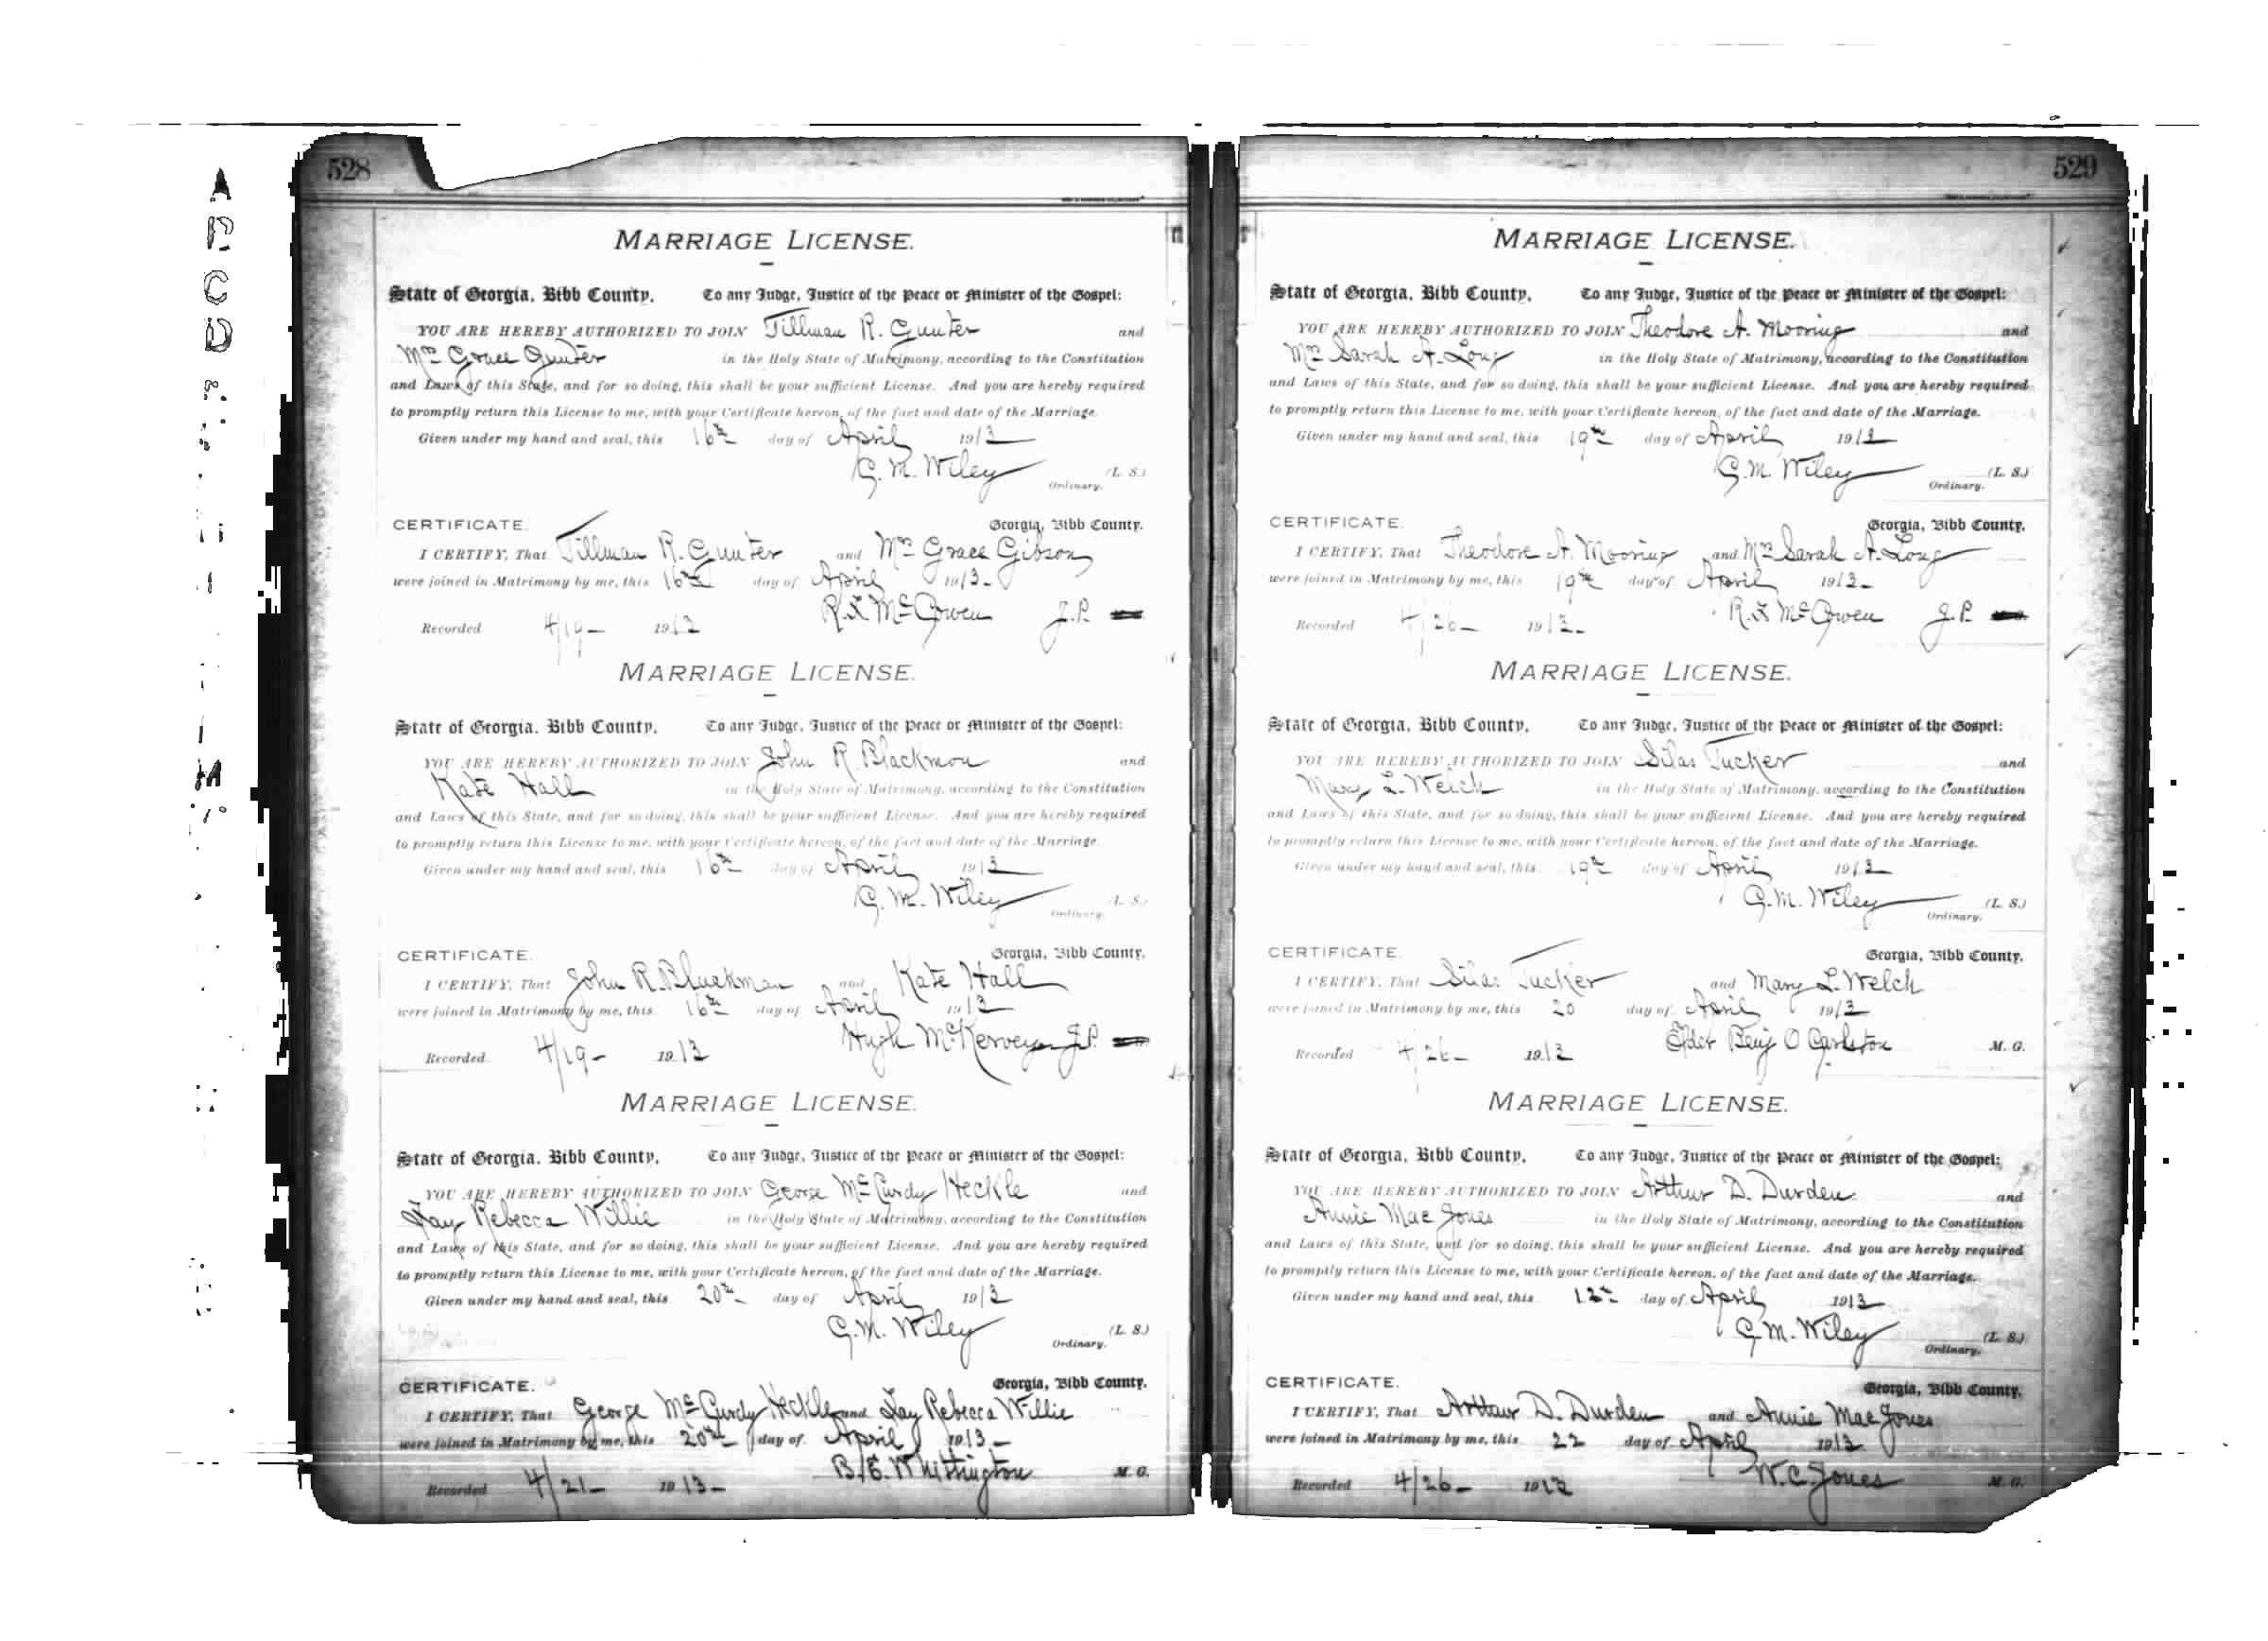 528
MARRIAGE LICENSE.
State of Georgia, Bibb County. To any Judge, Justice of the Peace or Minister of the Gospel:
YOU ARE HEREBY AUTHORIZED TO JOIN Tillman R. Gunter and
Mrs Grace Gunter in the Holy State of Matrimony, according to the Constitution
and Laws of this State, and for so doing, this shall be your sufficient License. And you are hereby required
to promptly return this License to me, with your Certificate hereon, of the fact and date of the Marriage.
Given under my hand and seal, this 16th day of April 1913
G. M. Wiley (L. S.)
Ordinary.
CERTIFICATE. Georgia, Bibb County.
I CERTIFY, That Tillman R. Gunter and Mrs Grace Gibson
were joined in Matrimony by me, this 16th day of April 1913-
R. L. McGowen J.P.
Recorded 4/19- 1913
MARRIAGE LICENSE.
State of Georgia. Bibb County. To any Judge, Justice of the Peace or Minister of the Gospel:
YOU ARE HEREBY AUTHORIZED TO JOIN John R. Blackmon and
Kate Hall in the Holy State of Matrimony, according to the Constitution
and Laws of this State, and for so doing, this shall be your sufficient License. And you are hereby required
to promptly return this License to me, with your Certificate hereon, of the fact and date of the Marriage.
Given under my hand and seal, this 16th day of April 1913
G. M. Wiley (L. S.)
Ordinary.
CERTIFICATE. Georgia, Bibb County.
I CERTIFY, That John R. Blackman and Kate Hall
were joined in Matrimony by me, this 16th day of April 1913
Hugh McKervey J.P.
Recorded 4/19- 1913
MARRIAGE LICENSE.
State of Georgia. Bibb County. To any Judge, Justice of the Peace or Minister of the Gospel:
YOU ARE HEREBY AUTHORIZED TO JOIN George McCurdy Heckle and
Fay Rebecca Willie in the Holy State of Matrimony, according to the Constitution
and Laws of this State, and for so doing, this shall be your sufficient License. And you are hereby required
to promptly return this License to me, with your Certificate hereon, of the fact and date of the Marriage.
Given under my hand and seal, this 20th day of April 1913
G. M. Wiley (L. S.)
Ordinary.
CERTIFICATE. Georgia, Bibb County.
I CERTIFY, That George McCurdy Heckle and Fay Rebecca Willie
were joined in Matrimony by me, this 20th day of April 1913-
B. E. Whittington M. G.
Recorded 4/21- 1913-
529
MARRIAGE LICENSE.
State of Georgia, Bibb County. To any Judge, Justice of the Peace or Minister of the Gospel:
YOU ARE HEREBY AUTHORIZED TO JOIN Theodore A. Mooring and
Mrs Sarah A. Long in the Holy State of Matrimony, according to the Constitution
and Laws of this State, and for so doing, this shall be your sufficient License. And you are hereby required
to promptly return this License to me, with your Certificate hereon, of the fact and date of the Marriage.
Given under my hand and seal, this 19th day of April 1913
G. M. Wiley (L. S.)
Ordinary.
CERTIFICATE. Georgia, Bibb County.
I CERTIFY, That Theodore A. Mooring and Mrs Sarah A. Long
were joined in Matrimony by me, this 19th day of April 1913-
R. L. McGowen J.P.
Recorded 4/26- 1913-
MARRIAGE LICENSE.
State of Georgia, Bibb County, To any Judge, Justice of the Peace or Minister of the Gospel:
YOU ARE HEREBY AUTHORIZED TO JOIN Silas Tucker and
Mary L. Welch in the Holy State of Matrimony, according to the Constitution
and Laws of this State, and for so doing, this shall be your sufficient License. And you are hereby required
to promptly return this License to me, with your Certificate hereon, of the fact and date of the Marriage.
Given under my hand and seal, this 19th day of April 1913
G. M. Wiley (L. S.)
Ordinary.
CERTIFICATE. Georgia, Bibb County.
I CERTIFY, That Silas Tucker and Mary L. Welch
were joined in Matrimony by me, this 20 day of April 1913
Elder Benj O M. G.
Recorded 4/26- 1913
MARRIAGE LICENSE.
State of Georgia, Bibb County, To any Judge, Justice of the Peace or Minister of the Gospel:
YOU ARE HEREBY AUTHORIZED TO JOIN Arthur D. Durden and
Annie Mae Jones in the Holy State of Matrimony, according to the Constitution
and Laws of this State, and for so doing, this shall be your sufficient License. And you are hereby required
to promptly return this License to me, with your Certificate hereon, of the fact and date of the Marriage.
Given under my hand and seal, this 12th day of April 1913
G. M. Wiley (L. S.)
Ordinary.
CERTIFICATE. Georgia, Bibb County.
I CERTIFY, That Arthur D. Durden and Annie Mae Jones
were joined in Matrimony by me, this 22 day of April 1913
W. C. Jones M. G.
Recorded 4/26- 1913